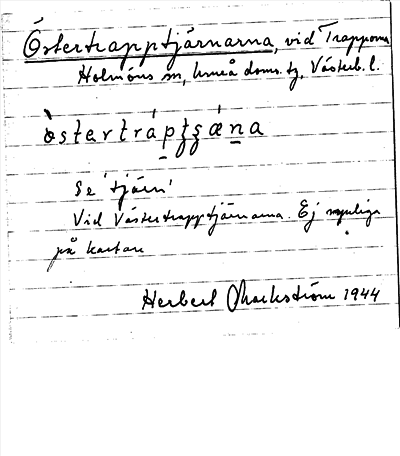 Östertrapptjärnarna, vid Trapporna
Holmöns sn, Umeå doms. tg, Västerb. l.
ò̀stertráptʂǽna
Se 'tjärn'
Vid Västertrapptjärnarna. Ej synliga
på kartan
Herbert Markström 1944